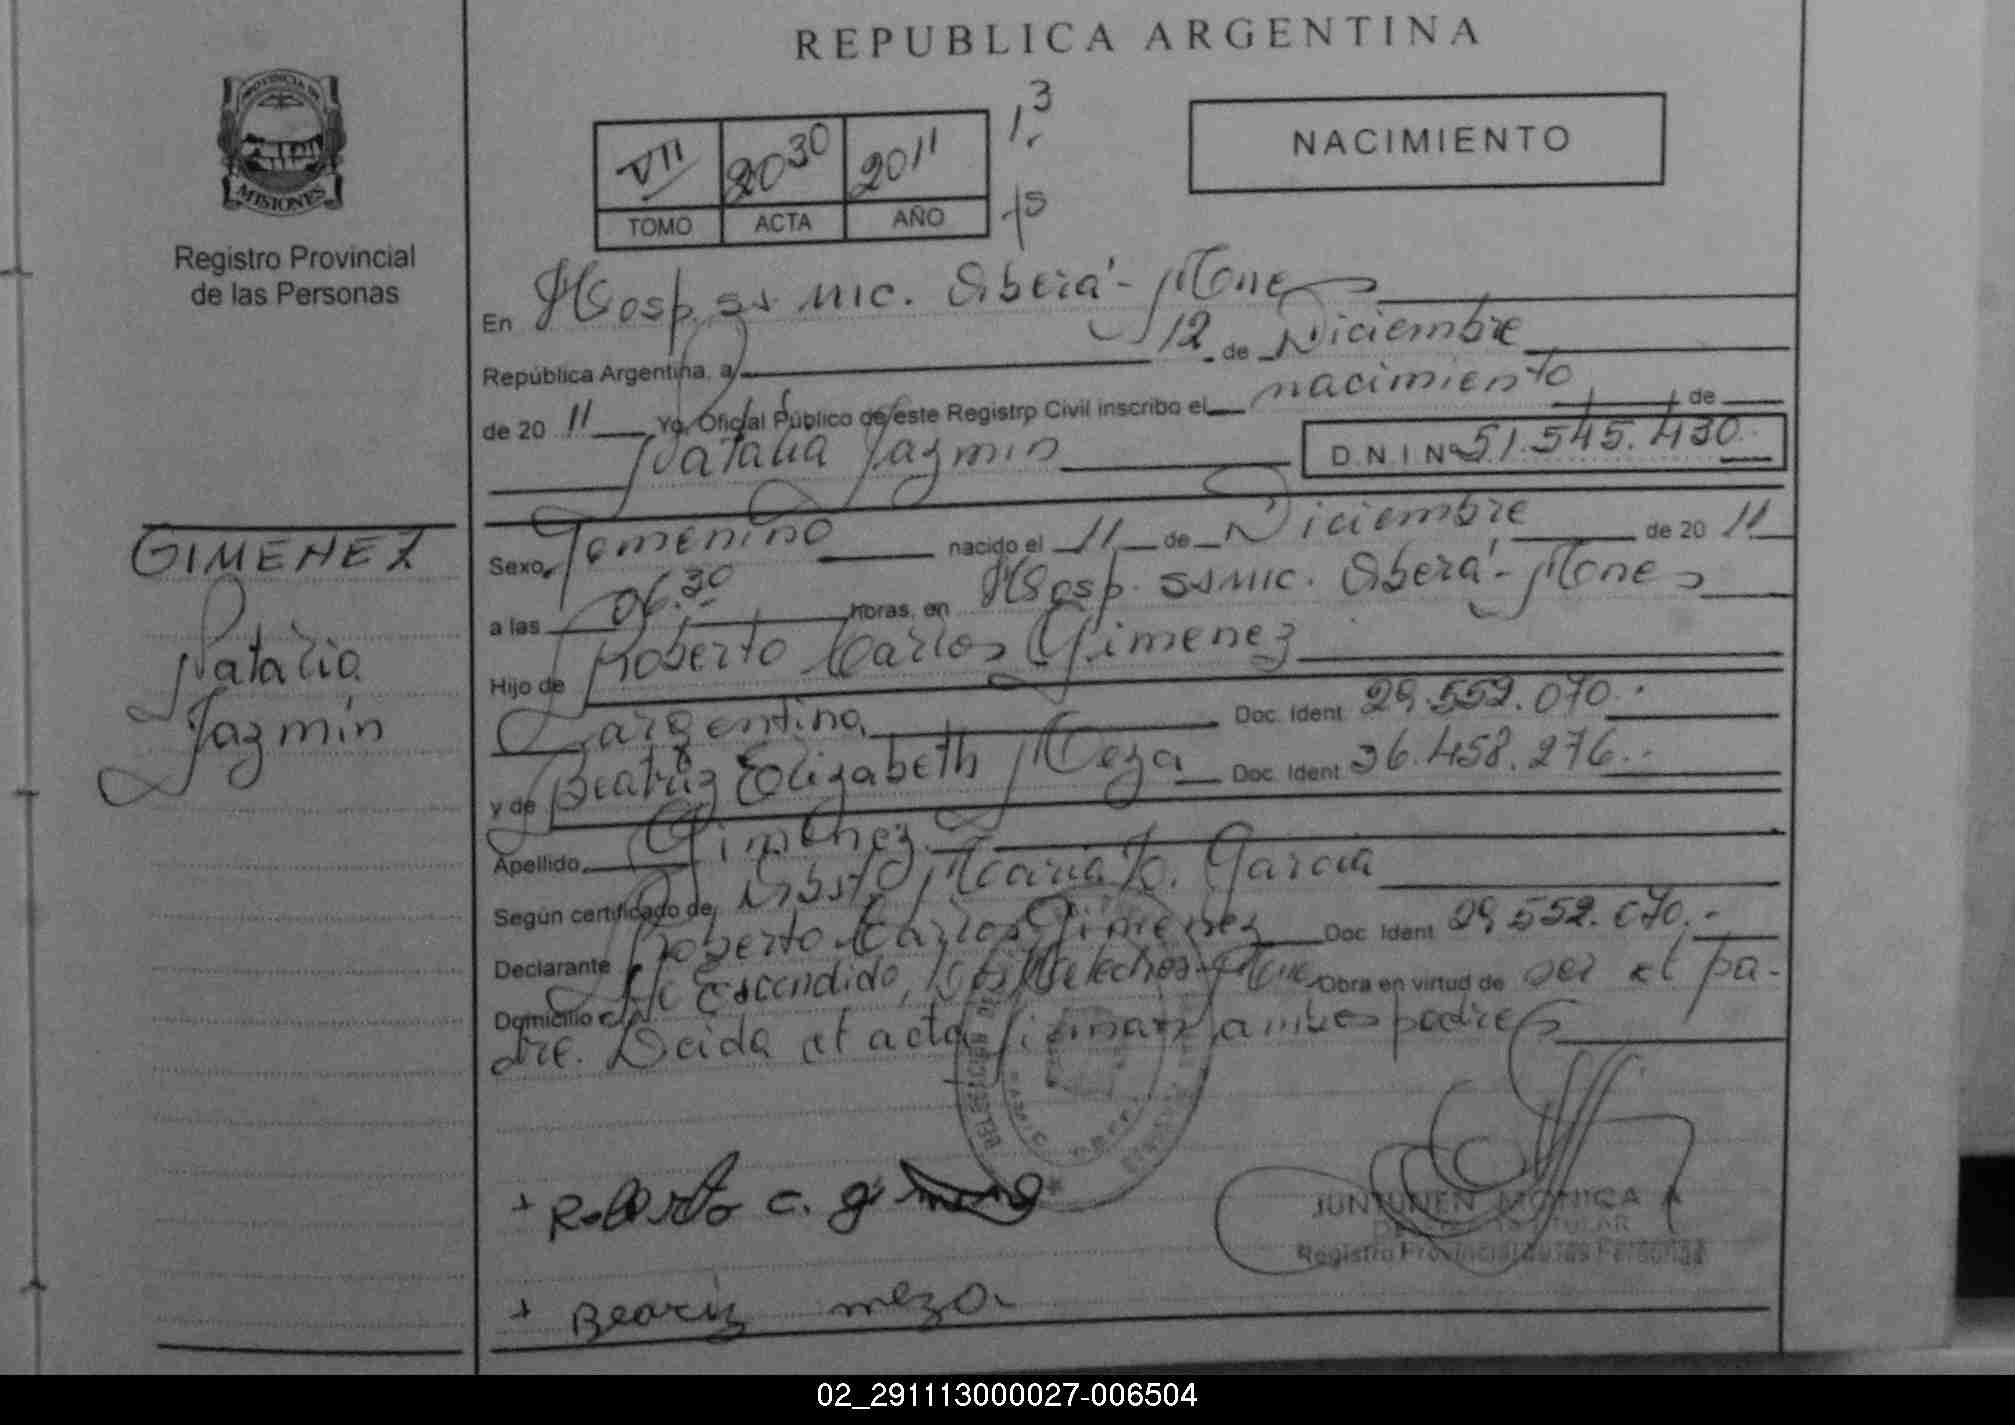 REPUBLICA ARGENTINA
PROVINCIA DE
MISIONES
Registro Provincial
de las Personas
VII 2030 2011
TOMO ACTA AÑO
NACIMIENTO
En Hosp. ss mic. Oberá - Mones
República Argentina, a 12 de Diciembre
de 20 11 Yo, Oficial Público de este Registro Civil inscribo el nacimiento de
Natalia Jazmin D.N.I Nº 51.545.430.-
GIMENEZ
Natalia
Jazmín
Sexo Femenino nacido el 11 de Diciembre de 20 11
a las 06.30 horas, en Hosp. ss mic. Oberá - Mones
Hijo de Roberto Carlos Gimenez
argentino Doc. Ident 29.552.070.-
y de Beatriz Elizabeth Meza Doc. Ident 36.458.276.-
Apellido Gimenez
Según certificado de Obst. García
Declarante Roberto Carlos Gimenez Doc Ident 29.552.070.-
Domicilio Aº Escondido, Los Helechos - Mones Obra en virtud de ser el pa-
dre. Leida el acta firman ambos padres
+ Roberto C. gimenez
JUNTUNEN MONICA A
TITULAR
Registro Provincial de las Personas
+ Bearriz meza
02_291113000027-006504